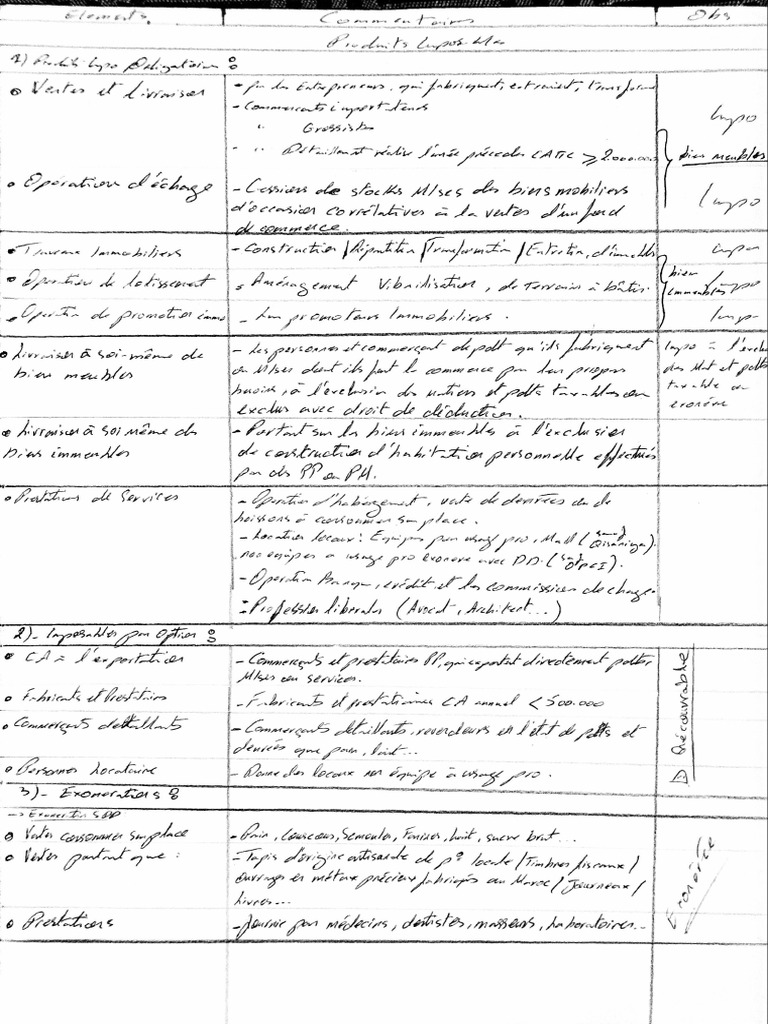 Elements. Commentaires Obs
Produits Imposables
1) Produits Impo Obligatoires :
• Ventes et livraison - par les Entrepreneurs, qui fabriquent, extraient, transforme
- Commerçants importateurs Impo
" Grossistes
" Détaillant réalise l'année précedes CATTC ⩾ 2.000.000 bien meubles
• Opération d'échange - Cessions de stocks M/ses des biens mobiliers Impo
d'occasion corrélatives à la ventes d'un fond
de commerce.
• Travaux Immobiliers - Construction / Répartition / Transformation / Entretien, d'immeubles Impo
• Opération de lotissement • Aménagement Viabilisation, de terrains à bâtir. bien immeubles Impo
• Opération de promotion immo - Les promoteurs Immobiliers. Impo
• Livraison à soi-même de - Les personnes et commerçant de pdt qu'ils fabriquent Impo = l'exclu
bien meubles ou M/ses dont ils font le commerce pour leur propres des Mat et pdts
besoins, à l'exclusion des matières et pdts taxables ou taxable ou
exclus avec droit de déduction. exonéré
• Livraison à soi même des - Portant sur les biens immeubles à l'exclusion
biens immeubles de construction d'habitation personnelle effectués
par des PP ou PM.
• Prestations de Services - Opération d'hébergement, vente de denrées ou de
boissons à consommer sur place.
- Location locaux : Equipés pour usage pro, Mall
non équipés à usage pro exonéré avec DD.
- Opération Banque, crédit et les commissions de change.
- Professions libérales (Avocat, Architect...)
2)- Imposables par Option :
• CA = l'exportation - Commerçants et prestataires PP, qui exportent directement pdts
M/ses ou services.
• Fabricants et Prestataires - Fabricants et prestataires CA annuel < 500.000
• Commerçants détaillants - Commerçants détaillants, revendeurs en l'état de pdts et
denrées que pain, lait...
• Personnes Locataire - Donne des locaux non équipé à usage pro.
D Récouvrable
3)- Exonerations :
-> Exonération SDD
• Ventes consommer sur place - Pain, Couscous, Semoules, Farines, lait, sucre brut...
• Ventes portant que : - Tapis d'origine artisanale de p° locale / Timbres fiscaux /
ouvrages en métaux précieux fabriqués au Maroc / Journeaux /
livres...
• Prestations - fournie par médecins, dentistes, masseurs, laboratoires...
Exonérée